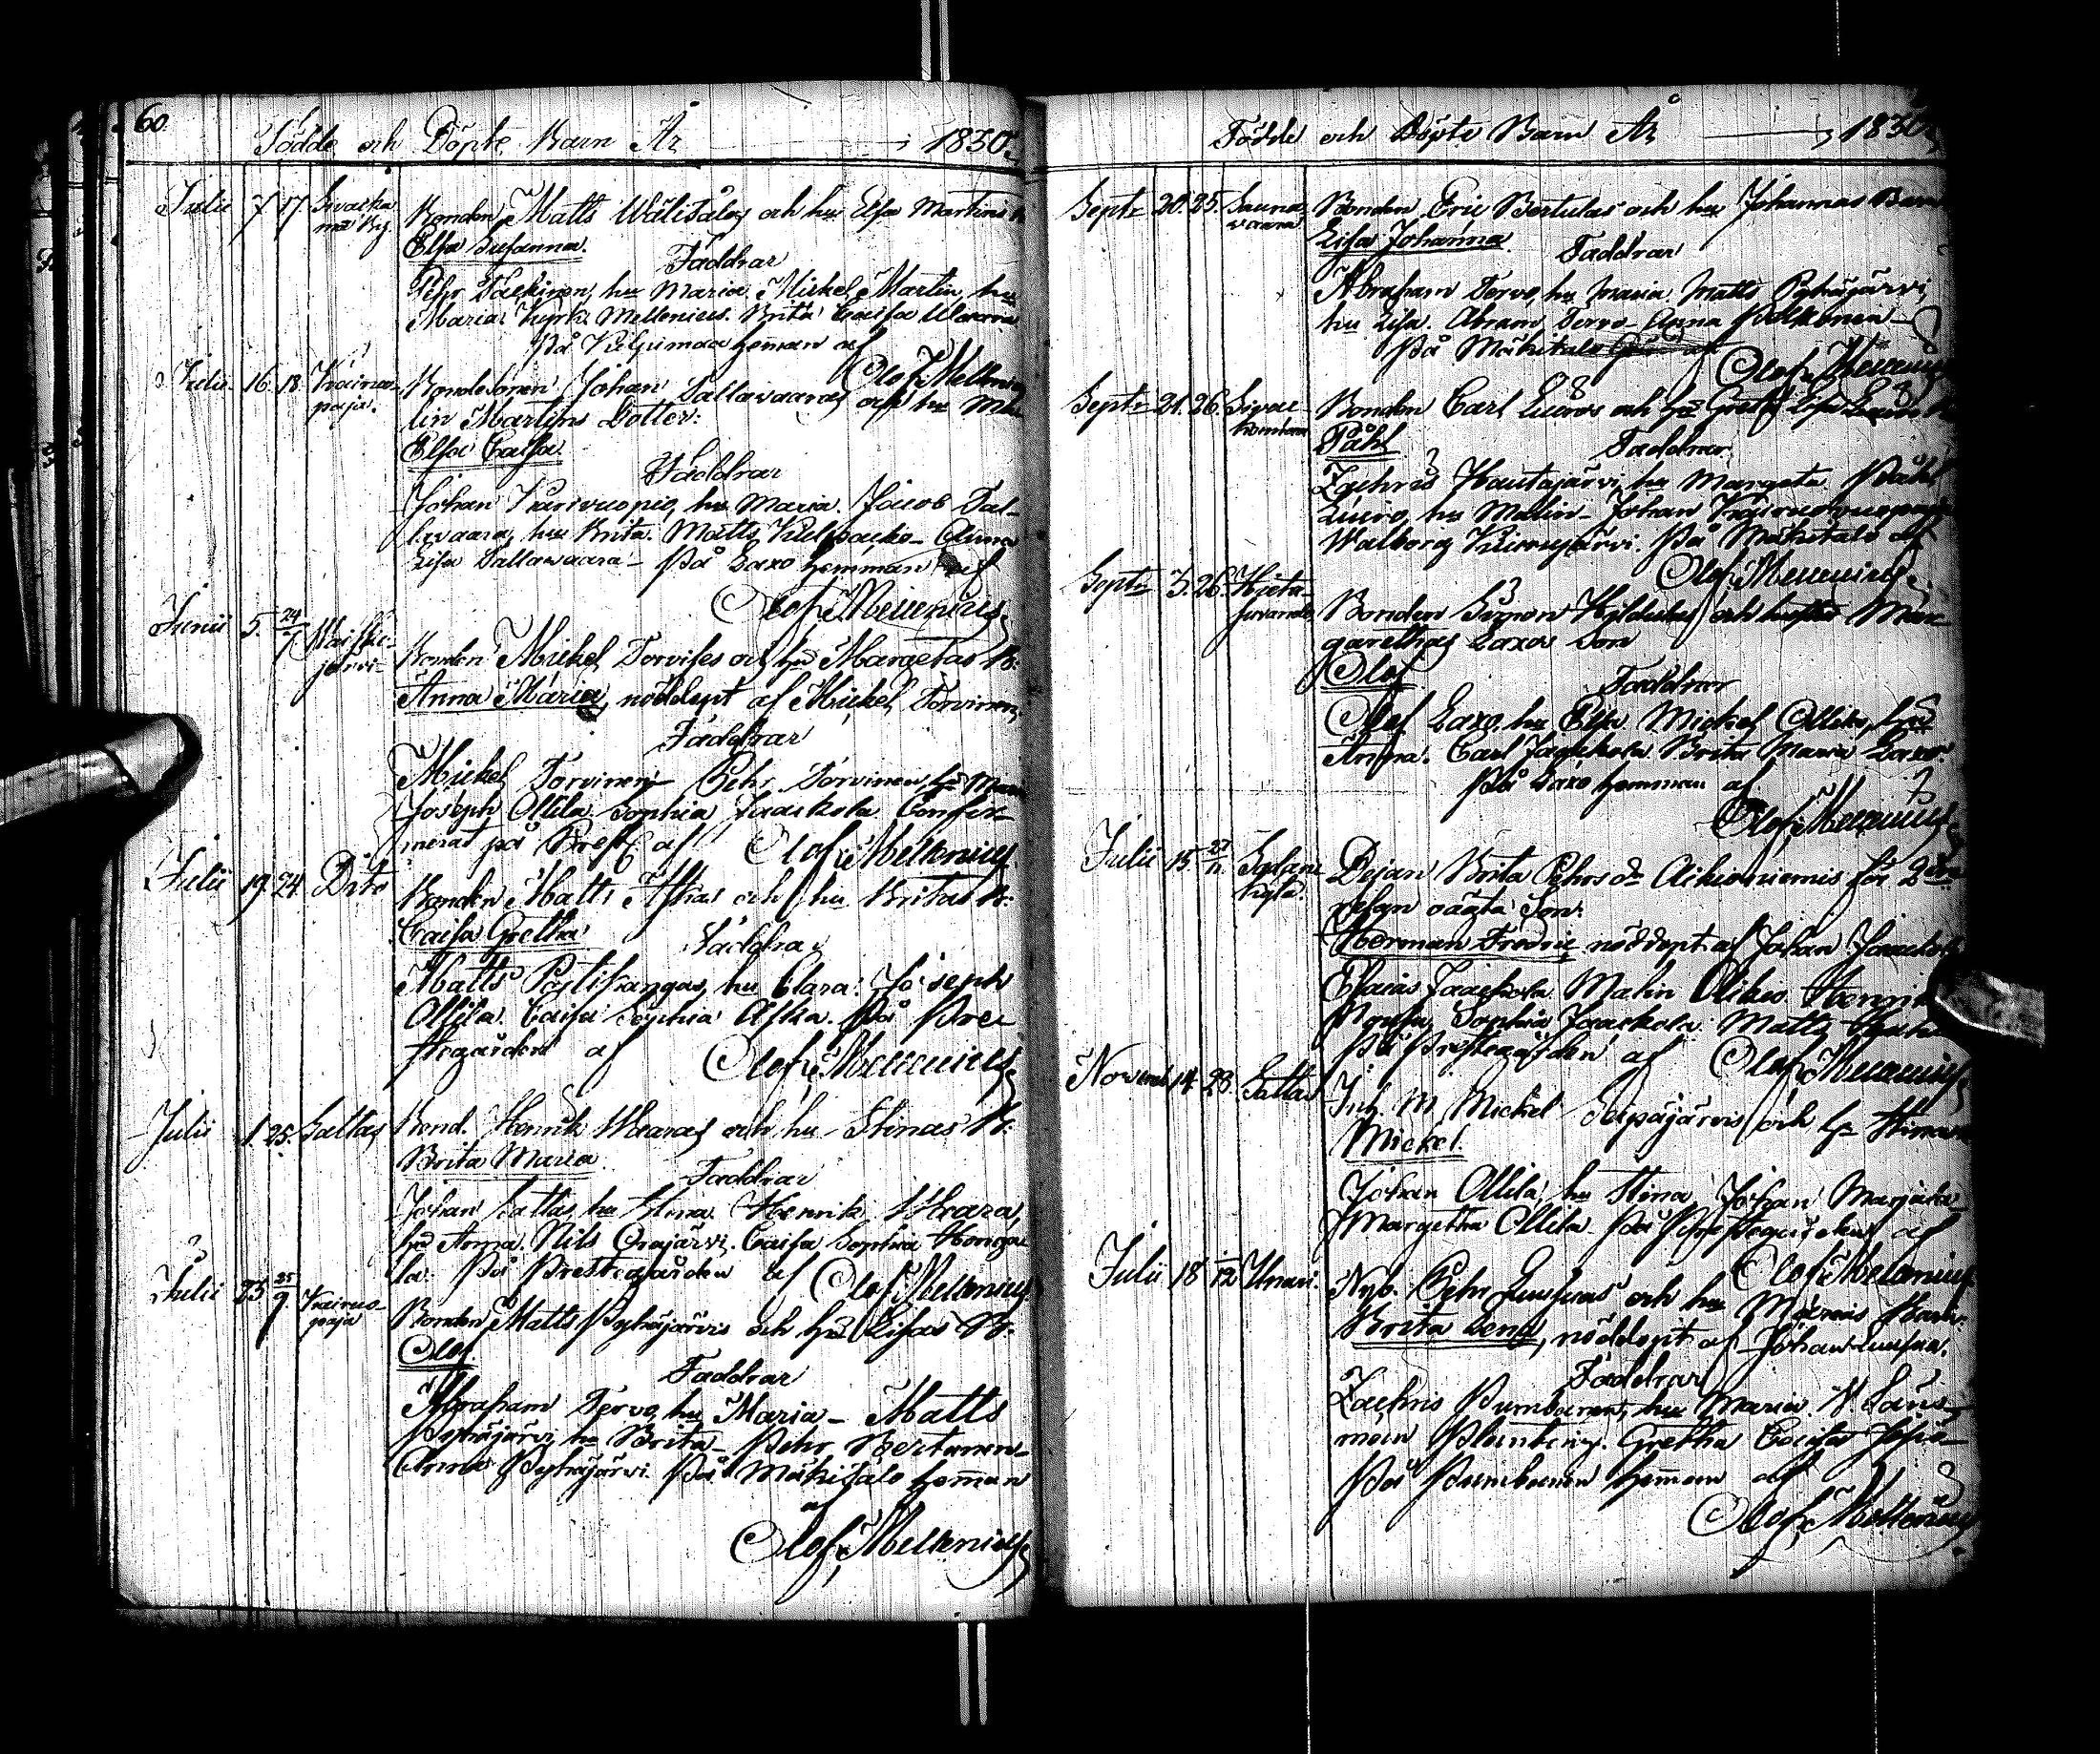 60.
Födde och Döpte Barn År 1830.
Julii 7. 17. Sivacka
Bonden Matts Wälitalos och hu Elsa Martins
Elsa Susanna.
Faddrar
Pehr hu Maria. Mickel Martin, hu
Maria. Brita Caisa Waara
På Kelujmaa heman af
Olof Mellenius
Julii 16. 18. Kairua-
paja.
Bondesonen Johan Sallawaaras och hu Ma-
lin Martins Dotter:
Elsa Caisa
Faddrar
Johan hu Maria. Jacob Sal-
lavaara, hu Brita. Matts
Lisa Sallawaara – På Laxo hemman af
Olof Mellenius
Junii 5. 24/7
järvi
Bonden Mickel Torvises och hu Margetas B:
Anna Maria, nöddöpt af Mickel Torvinen.
Faddrar
Mickel Torvinen Pehr Torvinen, hu Maria
Joseph Ollila. Sophia Jaackola Confir-
merat på Prestg af Olof Mellenius
Julii 19. 24. Dito
Bonden Matts Askas och hu Britas B:
Caisa Gretha
Faddrar
Matts Postikangas, hu Clara. Joseph
Ollila. Caisa Sophia Aska. På Pre-
stegården af Olof Mellenius
Julii 1. 25. Sattas
Bond. Henrik Waaras och hu Stinas B.
Brita Maria
Faddrar
Johan Sattas, hu Stina. Henrik Waara,
hu Anna. Nils Orajärvi. Caisa Sophia
la. På Prestegården af Olof Mellenius
Julii 23 25/9. Kairuo-
paja
Bonden Matts Pyhäjärvis och hu Lisas B:
Olof
Faddrar
Abraham Tervo, hu Maria – Matts
Pyhäjärvi, hu Brita – Pehr Bertunen –
Anna Pyhäjärvi. På Mäkitalo heman
af
Olof Mellenius
Födde och Döpte Barn År 1830
Septr 20. 25. Sauna
vaara
Bonden Eric Bertulas och hu Johannas Barn
Lisa Johanna
Faddrar
Abraham Tervo, hu Maria. Matts Pyhäjärvi,
hu Lisa. Abram Tervo – Anna
På Mäkitalo af
Olof Mellenius
Septr 21. 26.
Bonden Carl Luiros och hu Greta Lisa
Påhl
Faddrar
Zachris Hautajärvi, hu Margeta. Påhl
Luiro, hu Malin – Johan
Walborg Kiirujärvi. På Mäkitalo af
Olof Mellenius
Septr 3. 26. Hieta-
suvando
Bonden Simon och hustru Mar-
garethas Laxos Son
Olof
Faddrar
Olof Laxo, hu Elsa. Mickel Ollila, hu
Anna. Carl Jaackola. Brita Maria Laxo.
På Laxo hemman af
Olof Mellenius
Julii 15. 27/11 Sodan-
kylä.
Pejan Brita Pehrs dr Aikioniemis för 2dra
resan oägta Son:
Herman Fredric, nöddöpt af Johan Jaackola
Elaias Jaackola. Malin Aikio. Henrik
Sophia Jaackola. Matts
På Prestegården af Olof Mellenius
Novemb 14. 28. Sattas
Inh. M Mickel Seipäjärvis och hu Stinas
Mickel.
Johan Ollila, hu Stina, Johan
Margetha Ollila. På Prestegården af
Olof Mellenius
Julii 18 Unari.
Nyb. Pehr Luusuas och hu Marias Barn:
Brita Lena, nöddöpt af Johan Luusua.
Faddrar
Zachris Pumbanen, hu Maria.
Planting. Gretha Caisa
På Pumbanen heman af
Olof Mellenius